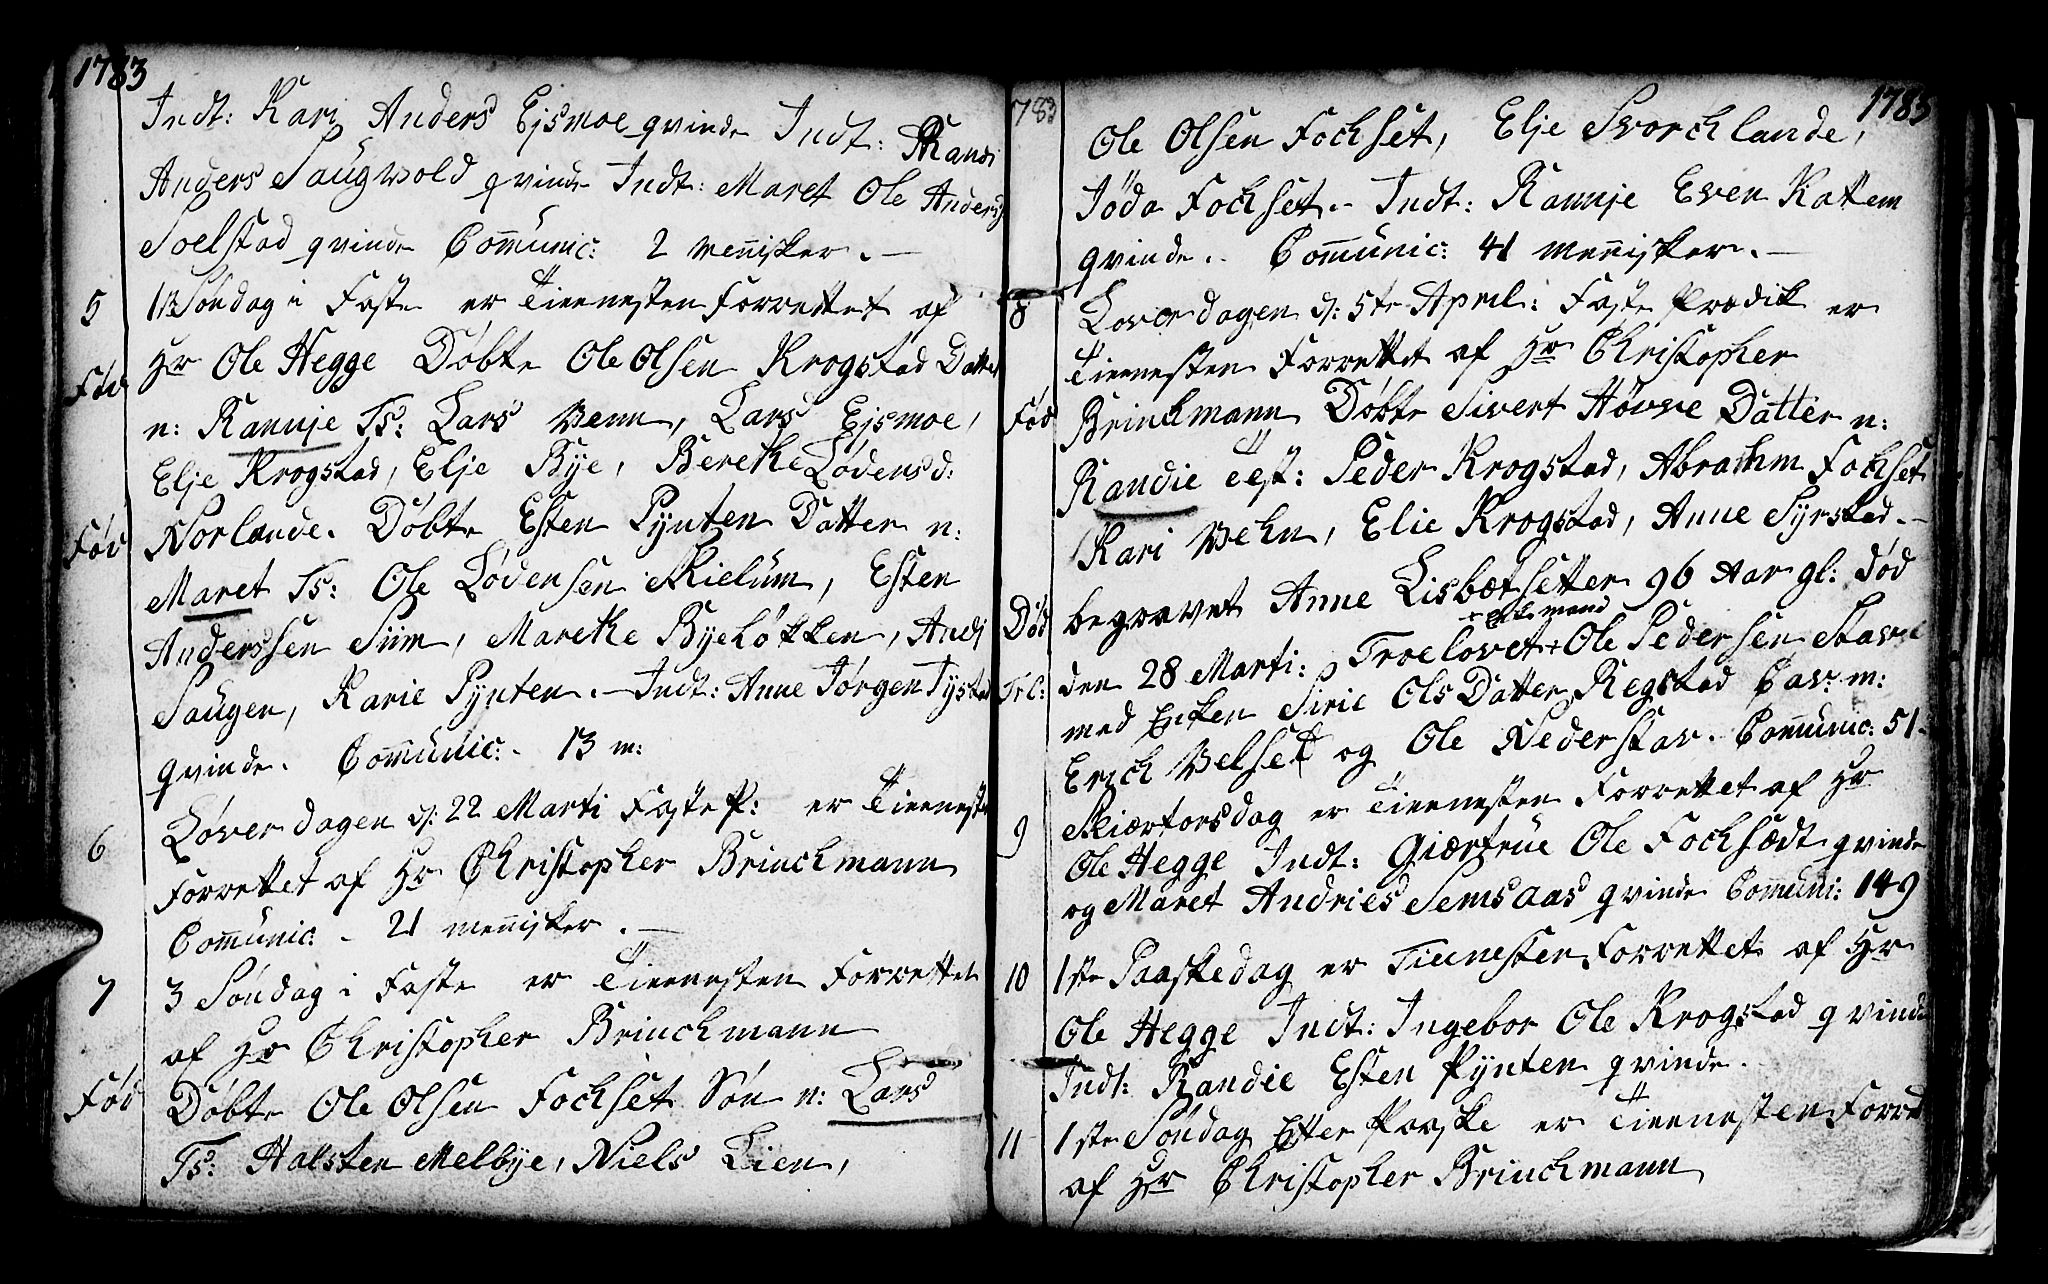 1783
Indt: Kari Anders Ejsmoe qvinde Indt: Randi
Anders Saugvold qvinde Indt: Maret Ole Anders
Soelstad qvinde Comunic: 2 menisker. —
5 1ste Søndag i Faste er Tieenesten Forrettet af
Hr Ole Hegge Døbte Ole Olsen Krogstad Datter
Fød
n: Rannje Ts: Lars Venn, Lars Ejsmoe,
Elje Krogstad, Elje Bye, Berethe Lødensd:
Fød Norlande. Døbte Esten Pynten Datter n:
Maret Ts: Ole Lødensen Skielum, Esten
Anderssen Sum, Marethe Byeløkken, Andr
Saugen, Karie Pynten. — Indt: Anne Jørgen Tystad
qvinde. Comunic: - 13 m:
6 Løverdagen d: 22 Marti Faste P: er Tieeneste
Forrettet af Hr Christopher Brinchmann
Comunic: - 21 menisker. —
7 3 Søndag i Faste er Tieenesten Forrettet
af Hr Christopher Brinchmann
Fød Døbte Ole Olsen Fochset Søn n: Lars
Ts: Halsten Melbye, Niels Lien,
1783 1783
Ole Olsen Fochset, Elje Svorchlande,
Jøda Fochset. - Indt: Rannje Even Kattem
qvinde. . Comunic: 41 menisker. —
8 Løverdagen d: 5te April: Faste Prædik er
Tieenesten Forrettet af Hr Christopher
Fød Brinchmann Døbte Sivert Høvve Datter n:
Randie Test: Peder Krogstad, Abrathm Fochset
Kari Vehn, Elie Krogstad, Anne Syrstad. —
Død begravet Anne Lisbetsetter 96 Aar gl: død
+ Enkemand
den 28 Marti: Troelovet + Ole Pedersen Stavne
Trl: med Enken Sirie OlsDatter Regstad Cav: m:
Erich Velset og Ole Nederstav. Comunic: 51 -
9 Skiærtorsdag er Tieenesten Forrettet af Hr
Ole Hegge Indt: Giærtrue Ole Fochsædt qvinde
og Maret Andries Semsaas qvinde Comuni: 149
10 1ste Paaskedag er Tieenesten Forrettet af Hr
Ole Hegge Indt: Ingebor Ole Krogstad qvinde
Indt: Randie Esten Pynten qvinde.
11 1ste Søndag Efter Paaske er Tieenesten Forret
af Hr Christopher Brinchmann